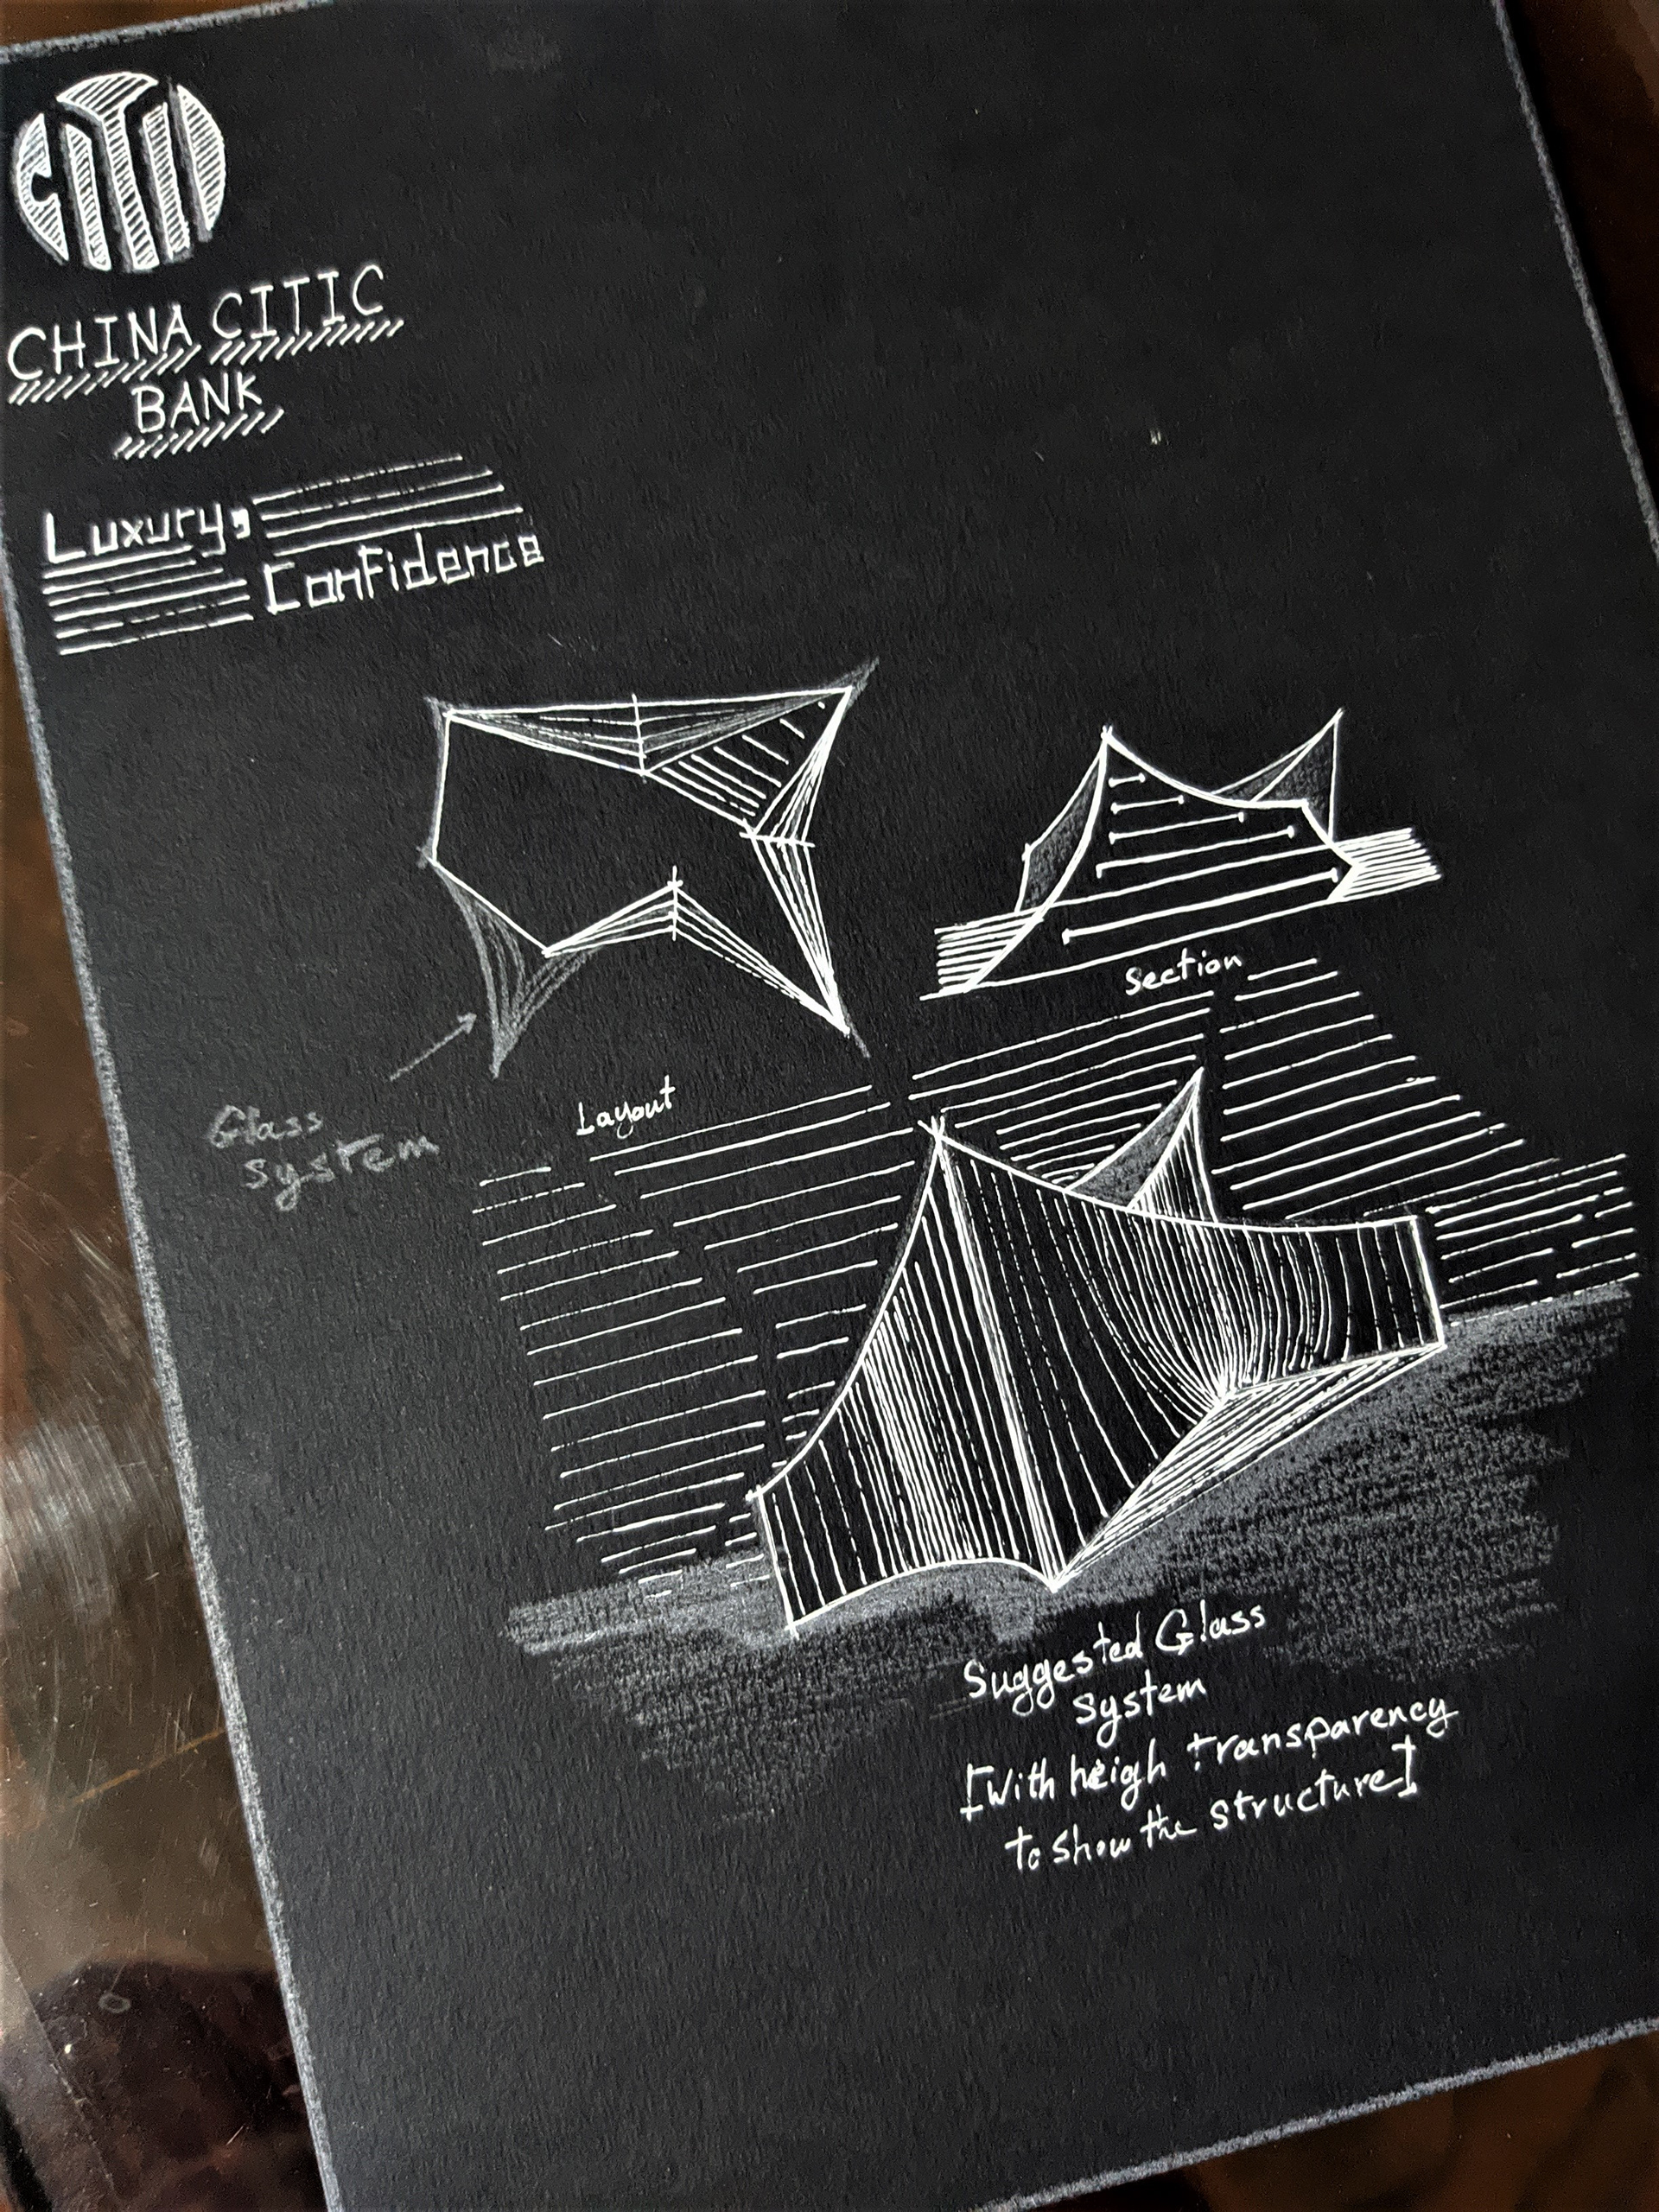 CITIC
CHINA CITIC
BANK
Luxury,
Confidence
Section
Layout
Glass
system
Suggested Glass
system
[with heigh transparency
to show the structure]